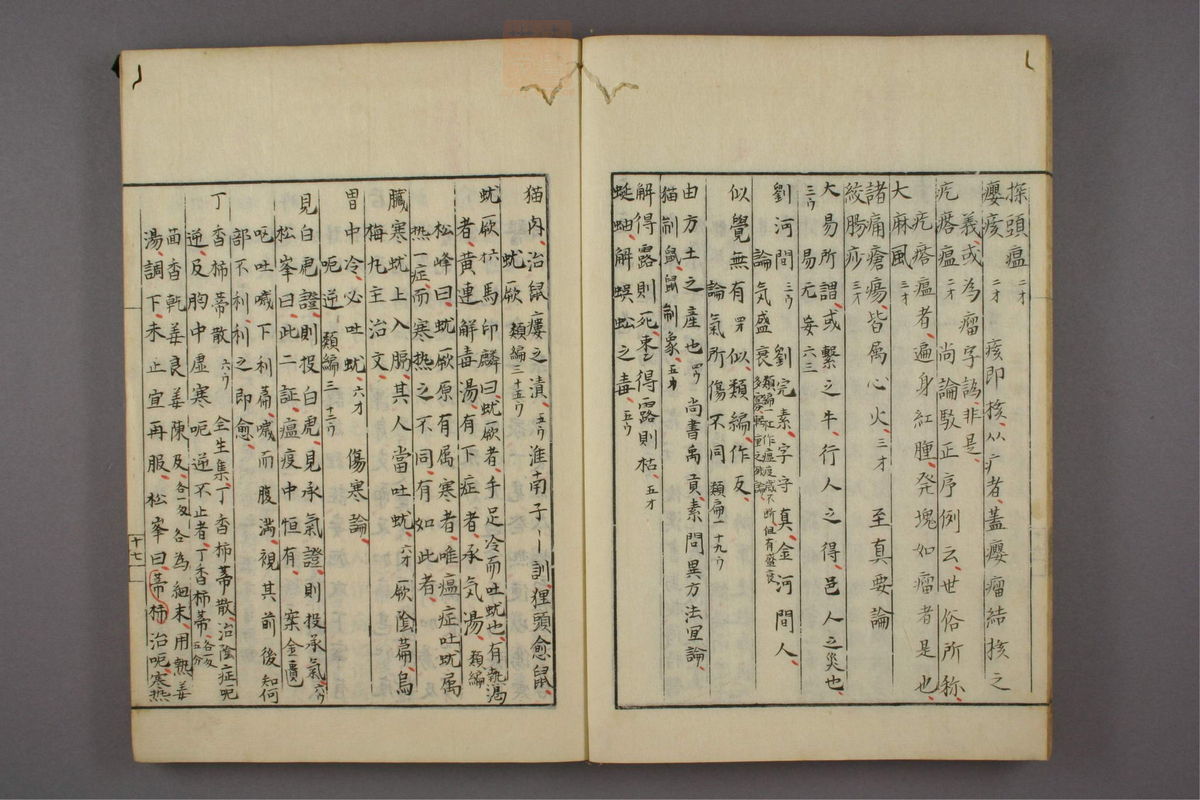 探頭瘟 二オ
瘿痎 二オ 痎即核、从疒者、蓋瘿瘤結核之
義、或為瘤字訛非是、
疙瘩瘟 二オ 尚論駁正序例云、世俗所称
疙瘩瘟者、遍身紅腫発塊如瘤者是也、
大麻風 三オ
諸痛瘡瘍、皆属心火、三オ 至真要論
絞腸痧 三オ
大易所謂、或繫之牛、行人之得、邑人之災也、
三ウ 易无妄六三
劉河間 三ウ 劉完素、字守真、金河間人、
論気盛衰
似覺無有 四オ 似、類編、作反、
論氣所傷不同 類編一十九ウ
由方土之産也 四ウ 尚書禹貢、素問異方法宜論、
猫制鼠、鼠制象、五オ
解得露則死、棗得露則枯、五オ
蜒蚰解蜈蚣之毒、五ウ
猫肉、治鼠瘻之潰、五ウ 淮南子、訓狸頭愈鼠、
蚘厥 類編三十五ウ
蚘厥六 馬印麟曰、蚘厥者手足冷而吐蚘也、有熱渇
者、黄連解毒湯、有下症者、承気湯、類編
松峰曰、蚘厥原有属寒者、唯瘟症吐蚘属
熱、一症而寒熱之不同、有如此者、
臓寒蚘上入膈、其人當吐蚘、六オ 厥陰篇、烏
梅丸主治文、
胃中冷、必吐蚘、六オ 傷寒論、
呃逆 類編三 十二ウ
見白虎證、則投白虎、見承氣證、則投承氣、六ウ
松峯曰、此二証、瘟疫中恒有、案金匱
呕吐噦下利篇、噦而腹満、視其前後、知何
部不利、利之即愈、
丁香柿蒂散 六ウ 全生集丁香柿蒂散、治陰症呃
逆、及胸中虚寒、呃逆不止者、丁香柿蒂
茴香乾姜良姜陳皮、各為細末、用熱姜
湯調下、未止宜再服、松峯曰、蒂柿治呃、寒熱
十七